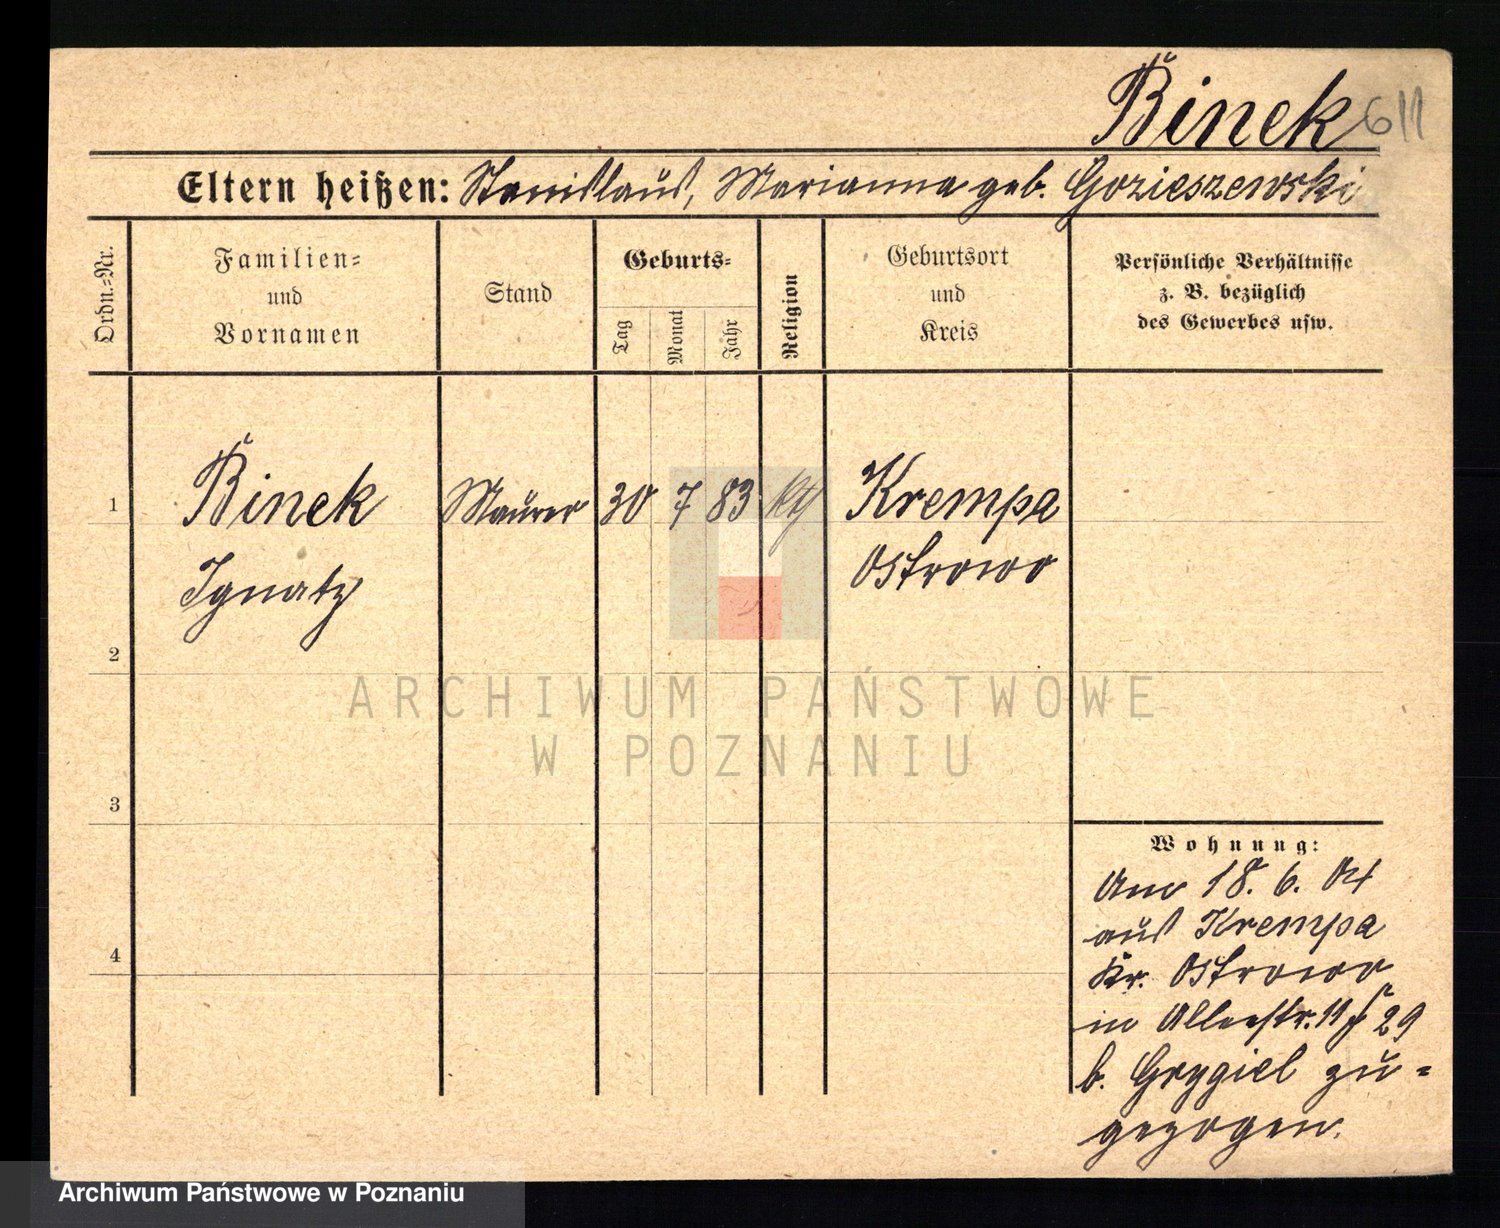 Binek 611
Eltern heißen: Stanislaus, Marianna geb. Gozieszewski
Ordn.-Nr.
Familien-
und
Vornamen
Stand
Geburts-
Tag
Monat
Jahr
Religion
Geburtsort
und
Kreis
Persönliche Verhältnisse
z. B. bezüglich
des Gewerbes usw.
1 Binek Maurer 30 7 83 kth Krempa
Ignatz Ostrowo
2
3
4
Wohnung:
Am 18. 6. 04
aus Krempa
Kr. Ostrowo
in Alleestr. 11 29
b. Grygiel zu-
gezogen.
ARCHIWUM PAŃSTWOWE
W POZNANIU
Archiwum Państwowe w Poznaniu